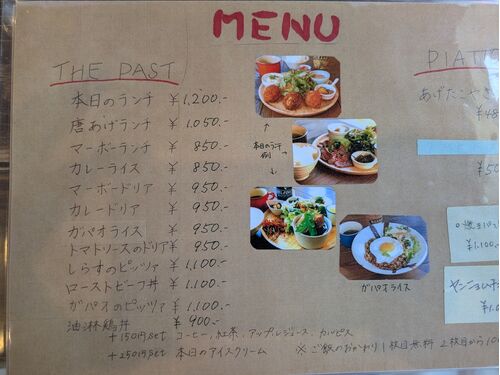 MENU
THE PAST
本日のランチ ¥1,200.-
唐あげランチ ¥1,050.-
マーボーランチ ¥850.-
カレーライス ¥850.-
マーボードリア ¥950.-
カレードリア ¥950.-
ガパオライス ¥950.-
トマトソースのドリア ¥950.-
しらすのピッツァ ¥1,100.-
ローストビーフ丼 ¥1,100.-
ガパオのピッツァ ¥1,100.-
油淋鶏丼 ¥900.-
+150円set コーヒー,紅茶,アップルジュース,カルピス
+250円set 本日のアイスクリーム ※ご飯のおかわり1枚目無料 2枚目から
↑
本日のランチ
例
↓
ガパオライス
あげたこやき
¥1,100.